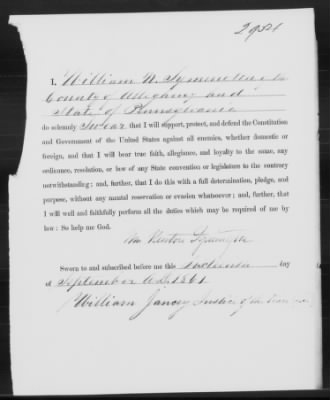 2954
I, William N.
County of Allegheny and
State of Pennsylvania
do solemnly Swear that I will support, protect, and defend the Constitution
and Government of the United States against all enemies, whether domestic or
foreign, and that I will bear true faith, allegiance, and loyalty to the same, any
ordinance, resolution, or law of any State convention or legislature to the contrary
notwithstanding; and, further, that I do this with a full determination, pledge, and
purpose, without any mental reservation or evasion whatsoever; and, further, that
I will well and faithfully perform all the duties which may be required of me by
law: So help me God.
Wm Newton
Sworn to and subscribed before me this day
of September A.D. 1861
William Justice of the